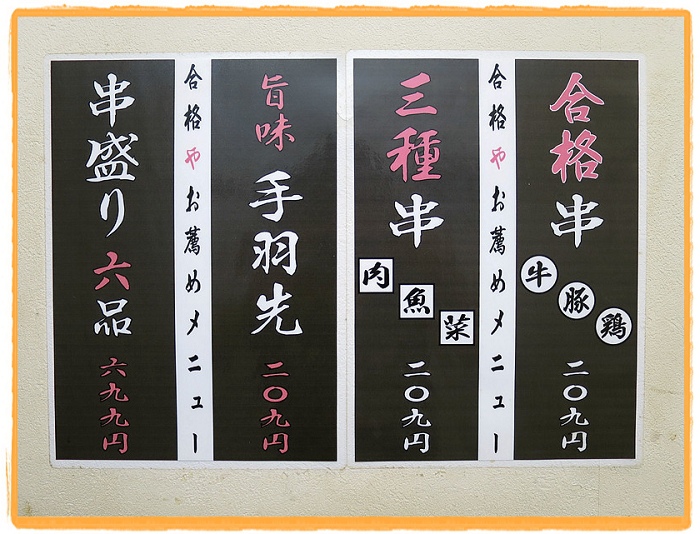 合格串
牛
豚
鶏
二〇九円
合格やお薦めメニュー
三種串
肉
魚
菜
二〇九円
旨味
手羽先
二〇九円
合格やお薦めメニュー
串盛り六品
六九九円